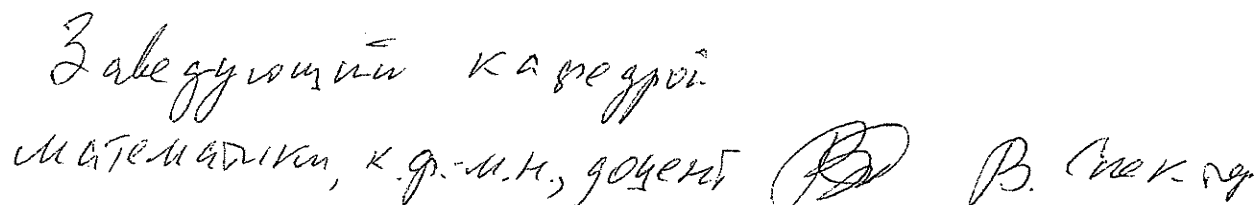 Заведующий кафедрой
математики, к.ф.-м.н., доцент В. Спектор